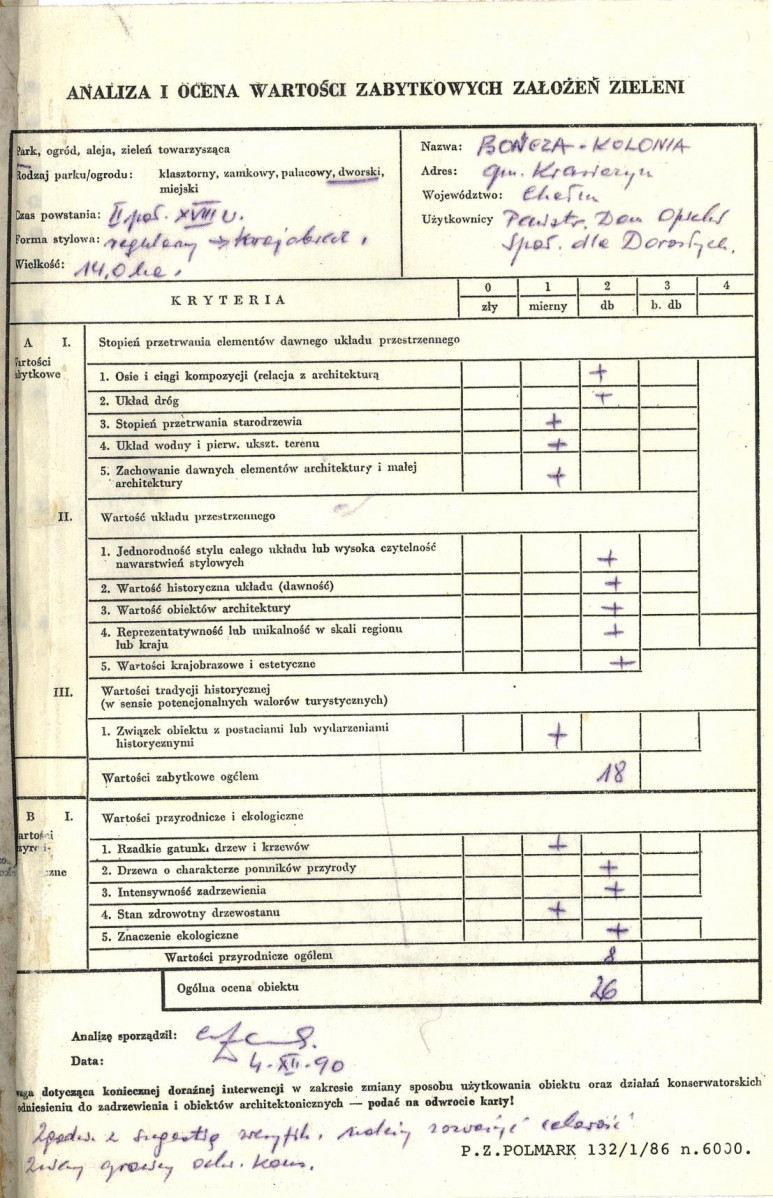 ANALIZA I OCENA WARTOŚCI ZABYTKOWYCH ZAŁOŻEŃ ZIELENI
Park, ogród, aleja, zieleń towarzysząca
Rodzaj parku/ogrodu: klasztorny, zamkowy, pałacowy, dworski,
miejski
Czas powstania: II poł. XVIII w.
Forma stylowa: regularny → krajobraz.
Wielkość: 14,0 ha.
Nazwa: BOŃCZA - KOLONIA
Adres: gm. Kraśniczyn
Województwo: Chełm
Użytkownicy Państw. Dom Opieki
Społ. dla Dorosłych.
KRYTERIA
0 1 2 3 4
zły mierny db b. db
A I. Stopień przetrwania elementów dawnego układu przestrzennego
artości
bytkowe
1. Osie i ciągi kompozycji (relacja z architekturą +
2. Układ dróg +
3. Stopień przetrwania starodrzewia +
4. Układ wodny i pierw. ukszt. terenu +
5. Zachowanie dawnych elementów architektury i małej
architektury +
II. Wartość układu przestrzennego
1. Jednorodność stylu całego układu lub wysoka czytelność
nawarstwień stylowych +
2. Wartość historyczna układu (dawność) +
3. Wartość obiektów architektury +
4. Reprezentatywność lub unikalność w skali regionu
lub kraju +
5. Wartości krajobrazowe i estetyczne +
III. Wartości tradycji historycznej
(w sensie potencjonalnych walorów turystycznych)
1. Związek obiektu z postaciami lub wydarzeniami
historycznymi +
Wartości zabytkowe ogółem 18
B I. Wartości przyrodnicze i ekologiczne
artości
zyro i-
zne
1. Rzadkie gatunki drzew i krzewów +
2. Drzewa o charakterze pomników przyrody +
3. Intensywność zadrzewienia +
4. Stan zdrowotny drzewostanu +
5. Znaczenie ekologiczne +
Wartości przyrodnicze ogółem 8
Ogólna ocena obiektu 26
Analizę sporządził:
Data: 4.XII.90
waga dotycząca koniecznej doraźnej interwencji w zakresie zmiany sposobu użytkowania obiektu oraz działań konserwatorskich
odniesieniu do zadrzewienia i obiektów architektonicznych — podać na odwrocie karty!
Zgodn. z sugestią weryfik. należy rozważyć celowość
zmiany granicy ochr. kons.
P.Z.POLMARK 132/1/86 n.6000.